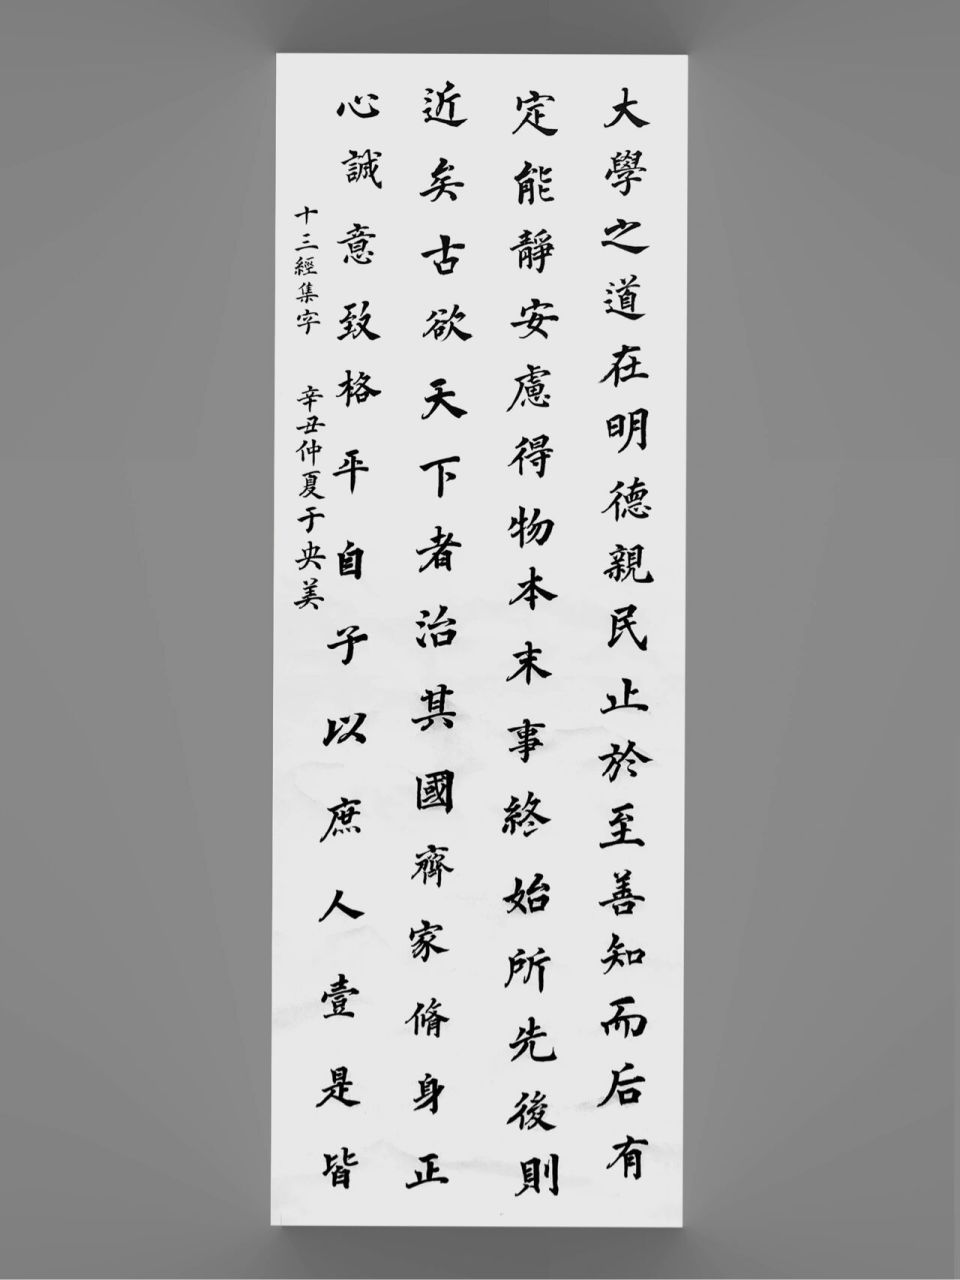 大學之道在明德親民止於至善知而后有
定能靜安慮得物本末事終始所先後則
近矣古欲天下者治其國齊家脩身正
心誠意致格平自子以庶人壹是皆
十三經集字 辛丑仲夏于央美